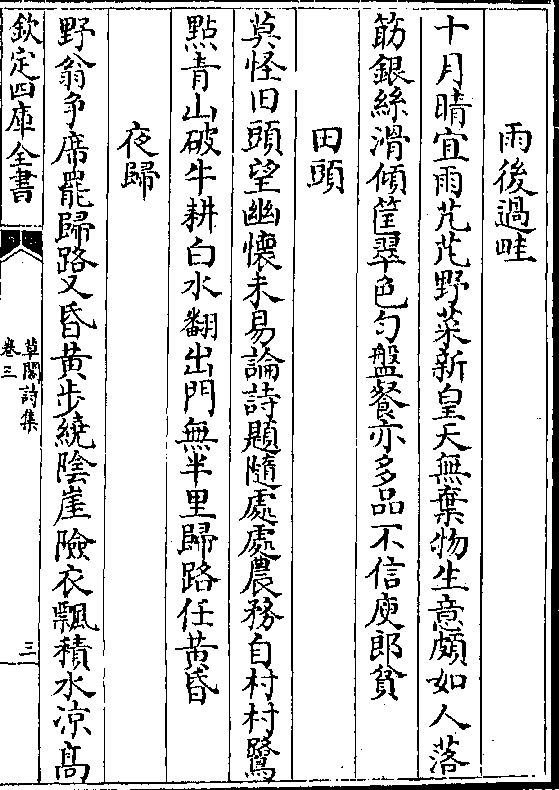 雨後過畦
十月晴宜雨芃芃野菜新皇天無棄物生意頗如人落
筯銀絲滑傾筐翠色勻盤餐亦多品不信庾郎貧
田頭
莫怪旧頭望幽懷未易論詩題隨處處農務自村村鷺
點青山破牛耕白水翻出門無半里歸路任黃昏
夜歸
野翁争席罷歸路又昏黃步繞陰崖險衣飄積水凉高
欽定四庫全書
草閣詩集
卷三
三